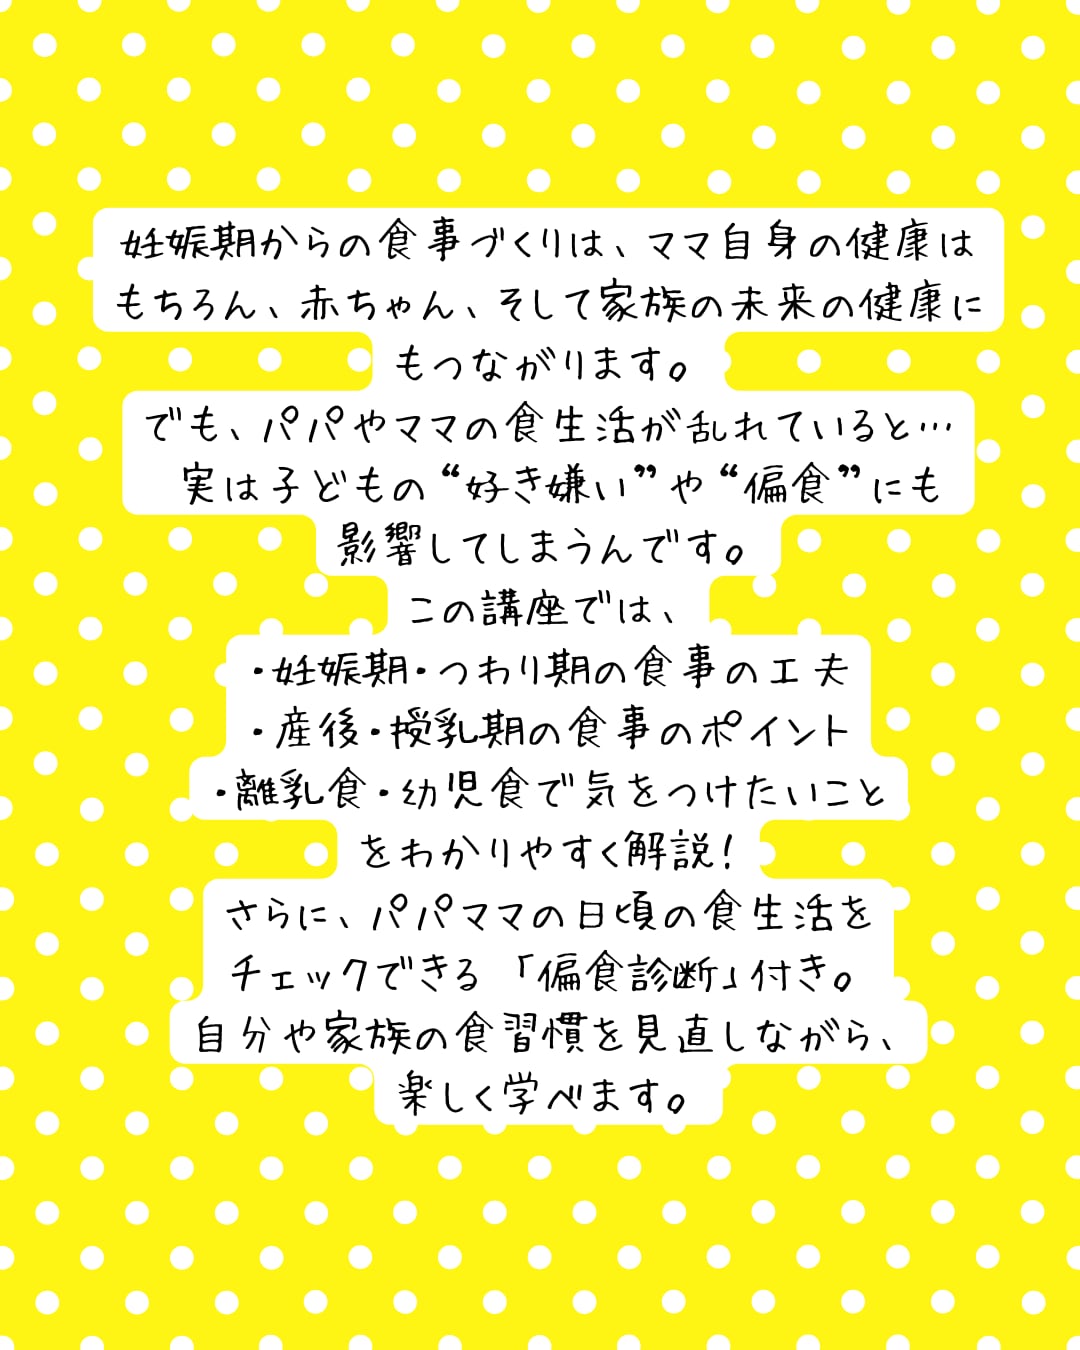 妊娠期からの食事づくりは、ママ自身の健康は
もちろん、赤ちゃん、そして家族の未来の健康に
もつながります。
でも、パパやママの食生活が乱れていると…
実は子どもの“好き嫌い”や“偏食”にも
影響してしまうんです。
この講座では、
・妊娠期・つわり期の食事の工夫
・産後・授乳期の食事のポイント
・離乳食・幼児食で気をつけたいこと
をわかりやすく解説！
さらに、パパママの日頃の食生活を
チェックできる「偏食診断」付き。
自分や家族の食習慣を見直しながら、
楽しく学べます。